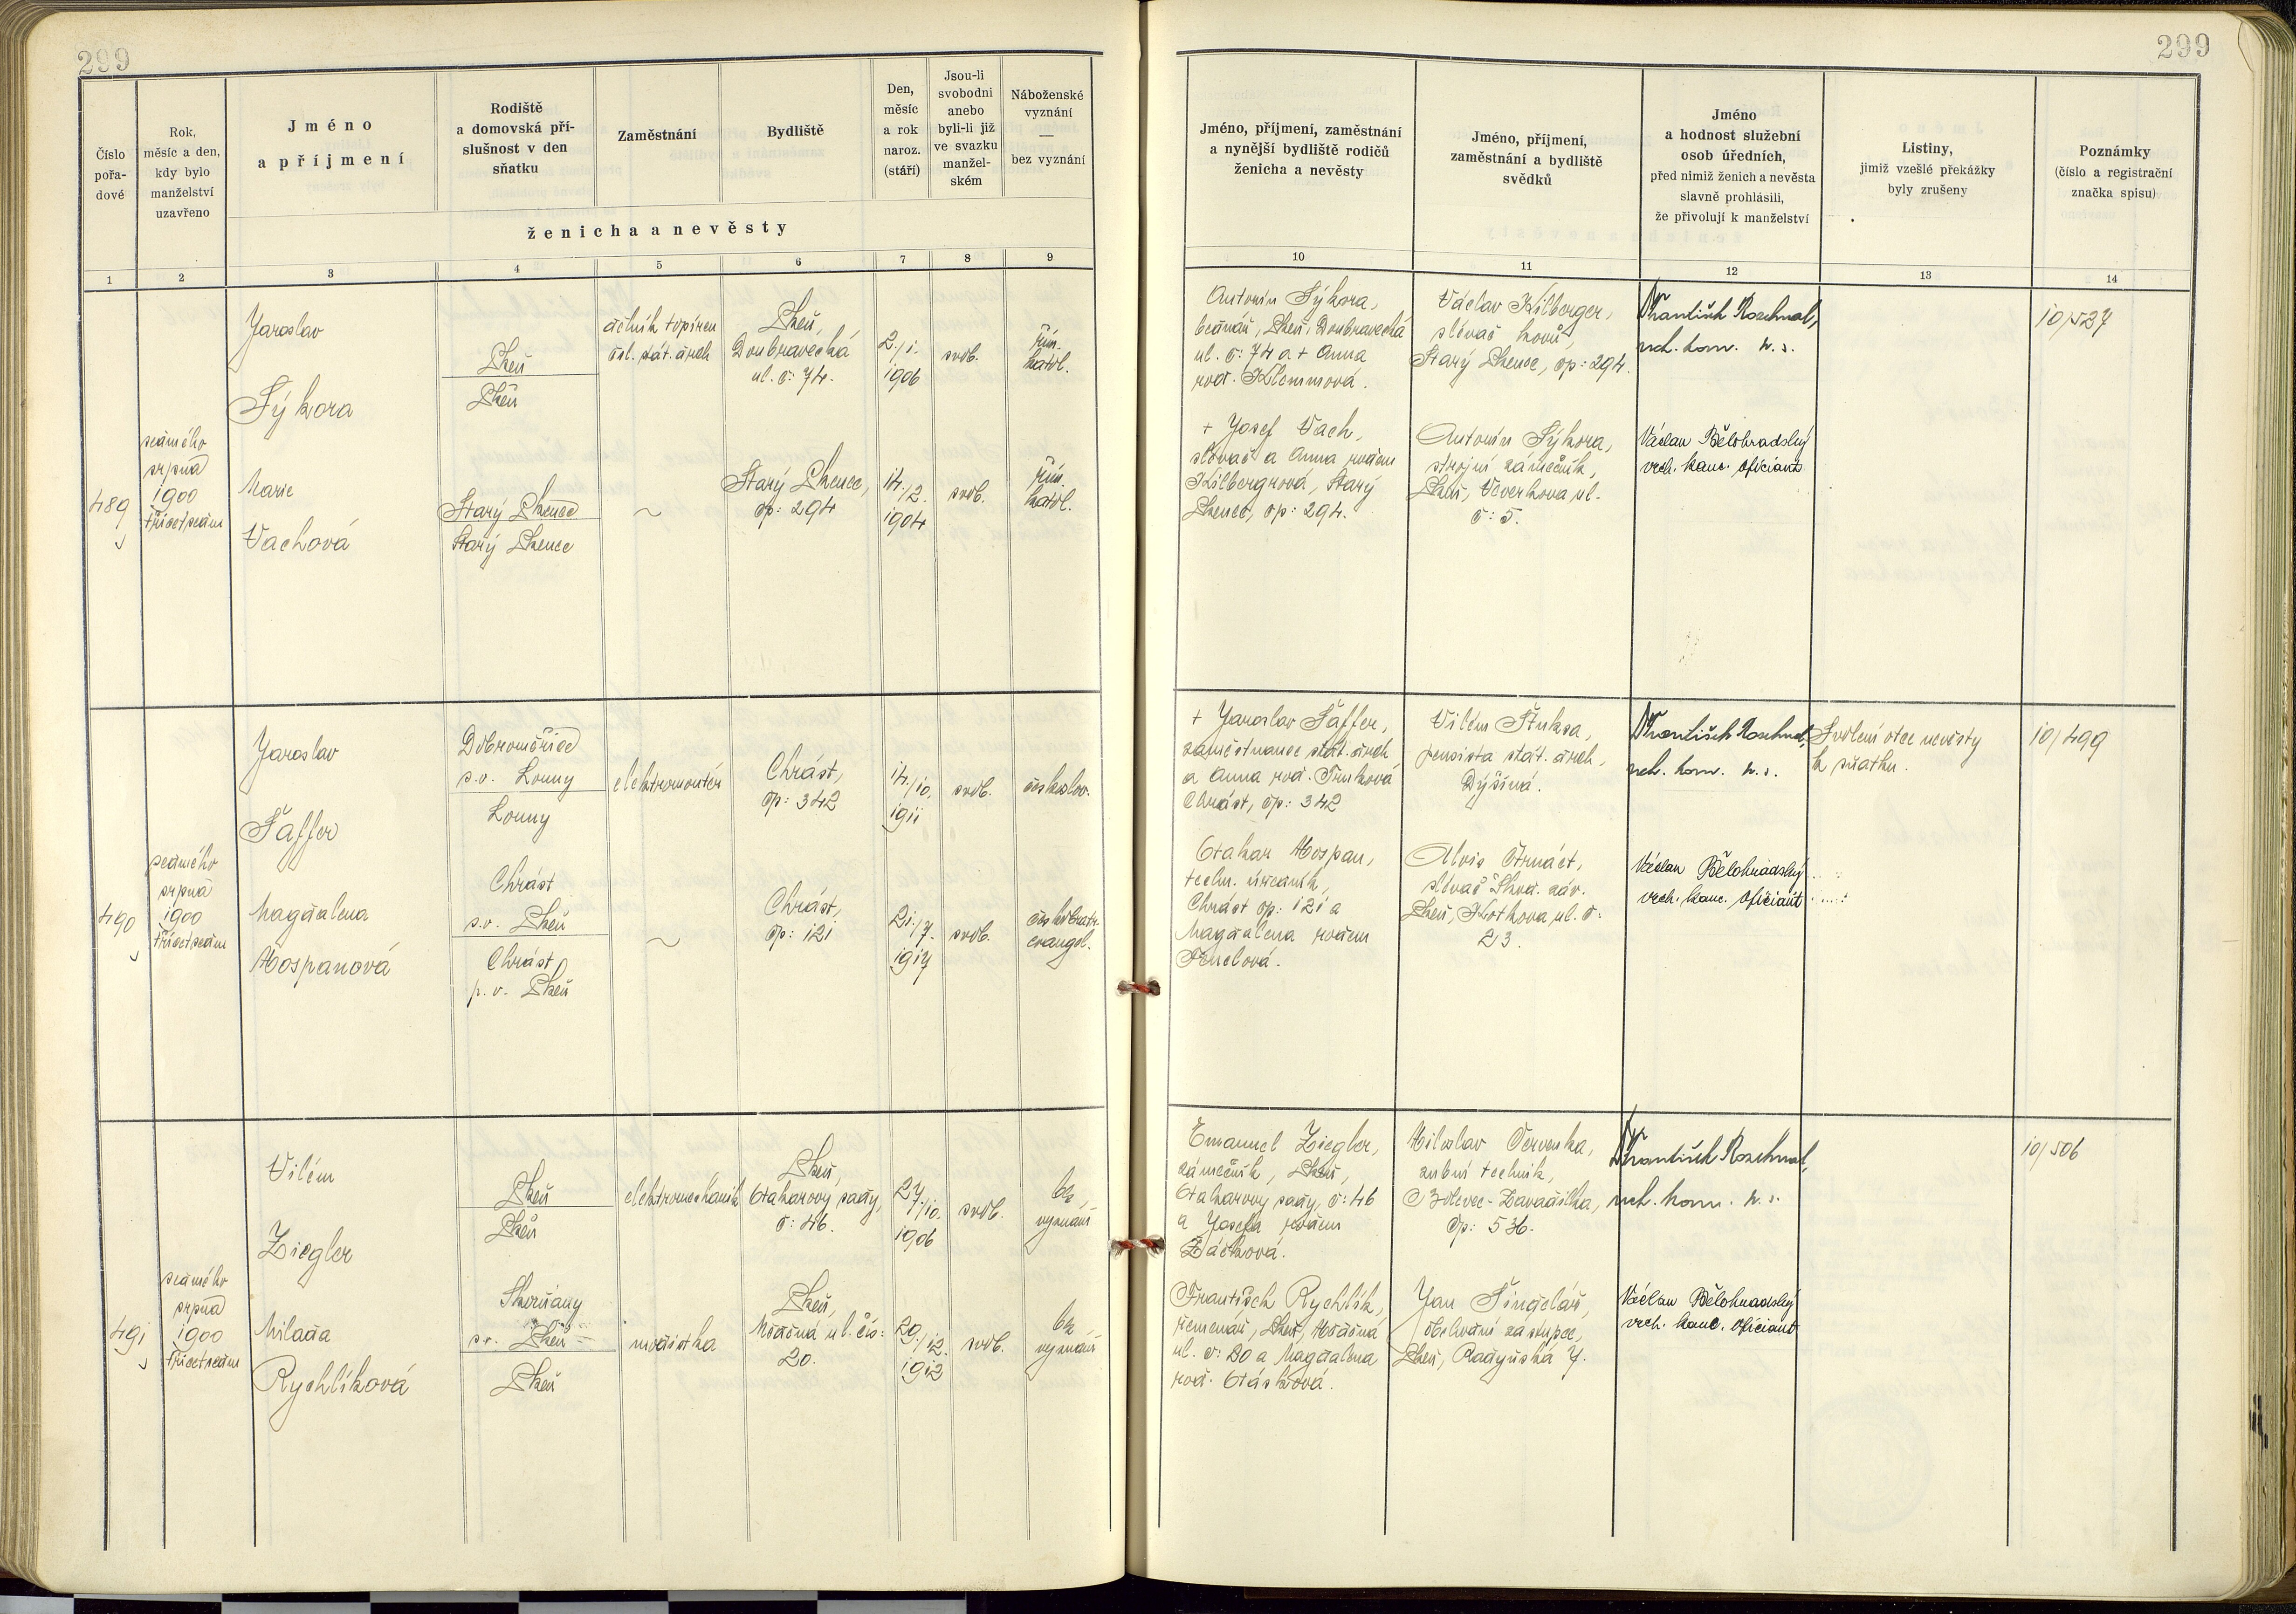 299
299
Číslo
pořa-
dové
Rok,
měsíc a den,
kdy bylo
manželství
uzavřeno
Jméno
a příjmení
Rodiště
a domovská pří-
slušnost v den
sňatku
Zaměstnání
Bydliště
Den,
měsíc
a rok
naroz.
(stáří)
Jsou-li
svobodni
anebo
byli-li již
ve svazku
manžel-
ském
Náboženské
vyznání
—
bez vyznání
ženicha a nevěsty
Jméno, příjmení, zaměstnání
a nynější bydliště rodičů
ženicha a nevěsty
Jméno, příjmení,
zaměstnání a bydliště
svědků
Jméno
a hodnost služební
osob úředních,
před nimiž ženich a nevěsta
slavně prohlásili,
že přivolují k manželství
Listiny,
jimiž vzešlé překážky
byly zrušeny
Poznámky
(číslo a registrační
značka spisu)
1 2 3 4 5 6 7 8 9 10 11 12 13 14
489
sedmého
srpna
1900
třicetsedm
Jaroslav
Sýkora
Plzeň
Plzeň
dělník topíren
čsl. stát. drah
Plzeň,
Doubravecká
ul. č: 74.
2./1.
1906
svob.
řím.
katol.
Marie
Vachová
Starý Plzenec
Starý Plzenec
~
Starý Plzenec,
čp: 294
14./2.
1904
svob.
řím.
katol.
Antonín Sýkora,
bednář, Plzeň, Doubravecká
ul. č: 74 a + Anna
rod. Klemmová.
+ Josef Vach,
slévač a Anna rodem
Kilbergrová, Starý
Plzenec, čp: 294.
Václav Kilberger,
slévač kovů,
Starý Plzenec, čp: 294.
Antonín Sýkora,
strojní zámečník,
Plzeň, Veverkova ul.
č: 5.
František
vrch. kom. n. s.
Václav Bělohradský
vrch. kanc. oficiant
10/527
490
sedmého
srpna
1900
třicetsedm
Jaroslav
Šaffer
Dobroměřice
s.o. Louny
Louny
elektromontér
Chrást,
čp: 342
14./10.
1911
svob.
českoslov.
Magdalena
Hospanová
Chrást
s.o. Plzeň
Chrást
p.o. Plzeň
~
Chrást,
čp: 121
21./7.
1917
svob.
českobratr.
evangel.
+ Jaroslav Šaffer,
zaměstnanec stát. drah
a Anna rod.
Chrást, čp: 342
Otakar Hospan,
techn. úředník,
Chrást čp: 121 a
Magdalena rodem
Vilém
pensista stát. drah,
Dýšina.
Alois Čtrnáct,
slévač Škod. záv.
Plzeň, Kotkova ul. č:
23.
František
vrch. kom. n. s.
Václav Bělohradský
vrch. kanc. oficiant
Svolení otce nevěsty
k sňatku.
10/499
491
sedmého
srpna
1900
třicetsedm
Vilém
Ziegler
Plzeň
Plzeň
elektromechanik
Plzeň,
Otakarovy sady,
č: 46.
27./10.
1906
svob.
bez
vyznání
Milada
Rychlíková
Skvrňany
s.o. Plzeň
Plzeň
modistka
Plzeň,
Hradčná ul. čís:
20.
29./12.
1912
svob.
bez
vyznání
Emanuel Ziegler,
zámečník, Plzeň,
Otakarovy sady, č: 46
a Josefa rodem
Žáčková.
František Rychlík,
řemenář, Plzeň,
ul. č: 20 a Magdalena
rod. Otásková.
Miloslav Červenka,
zubní technik,
Bolevec-Zavadilka,
čp: 536.
Jan Šindelář,
obchodní zástupce,
Plzeň, Radyňská 7.
František
vrch. kom. n. s.
Václav Bělohradský
vrch. kanc. oficiant
10/506